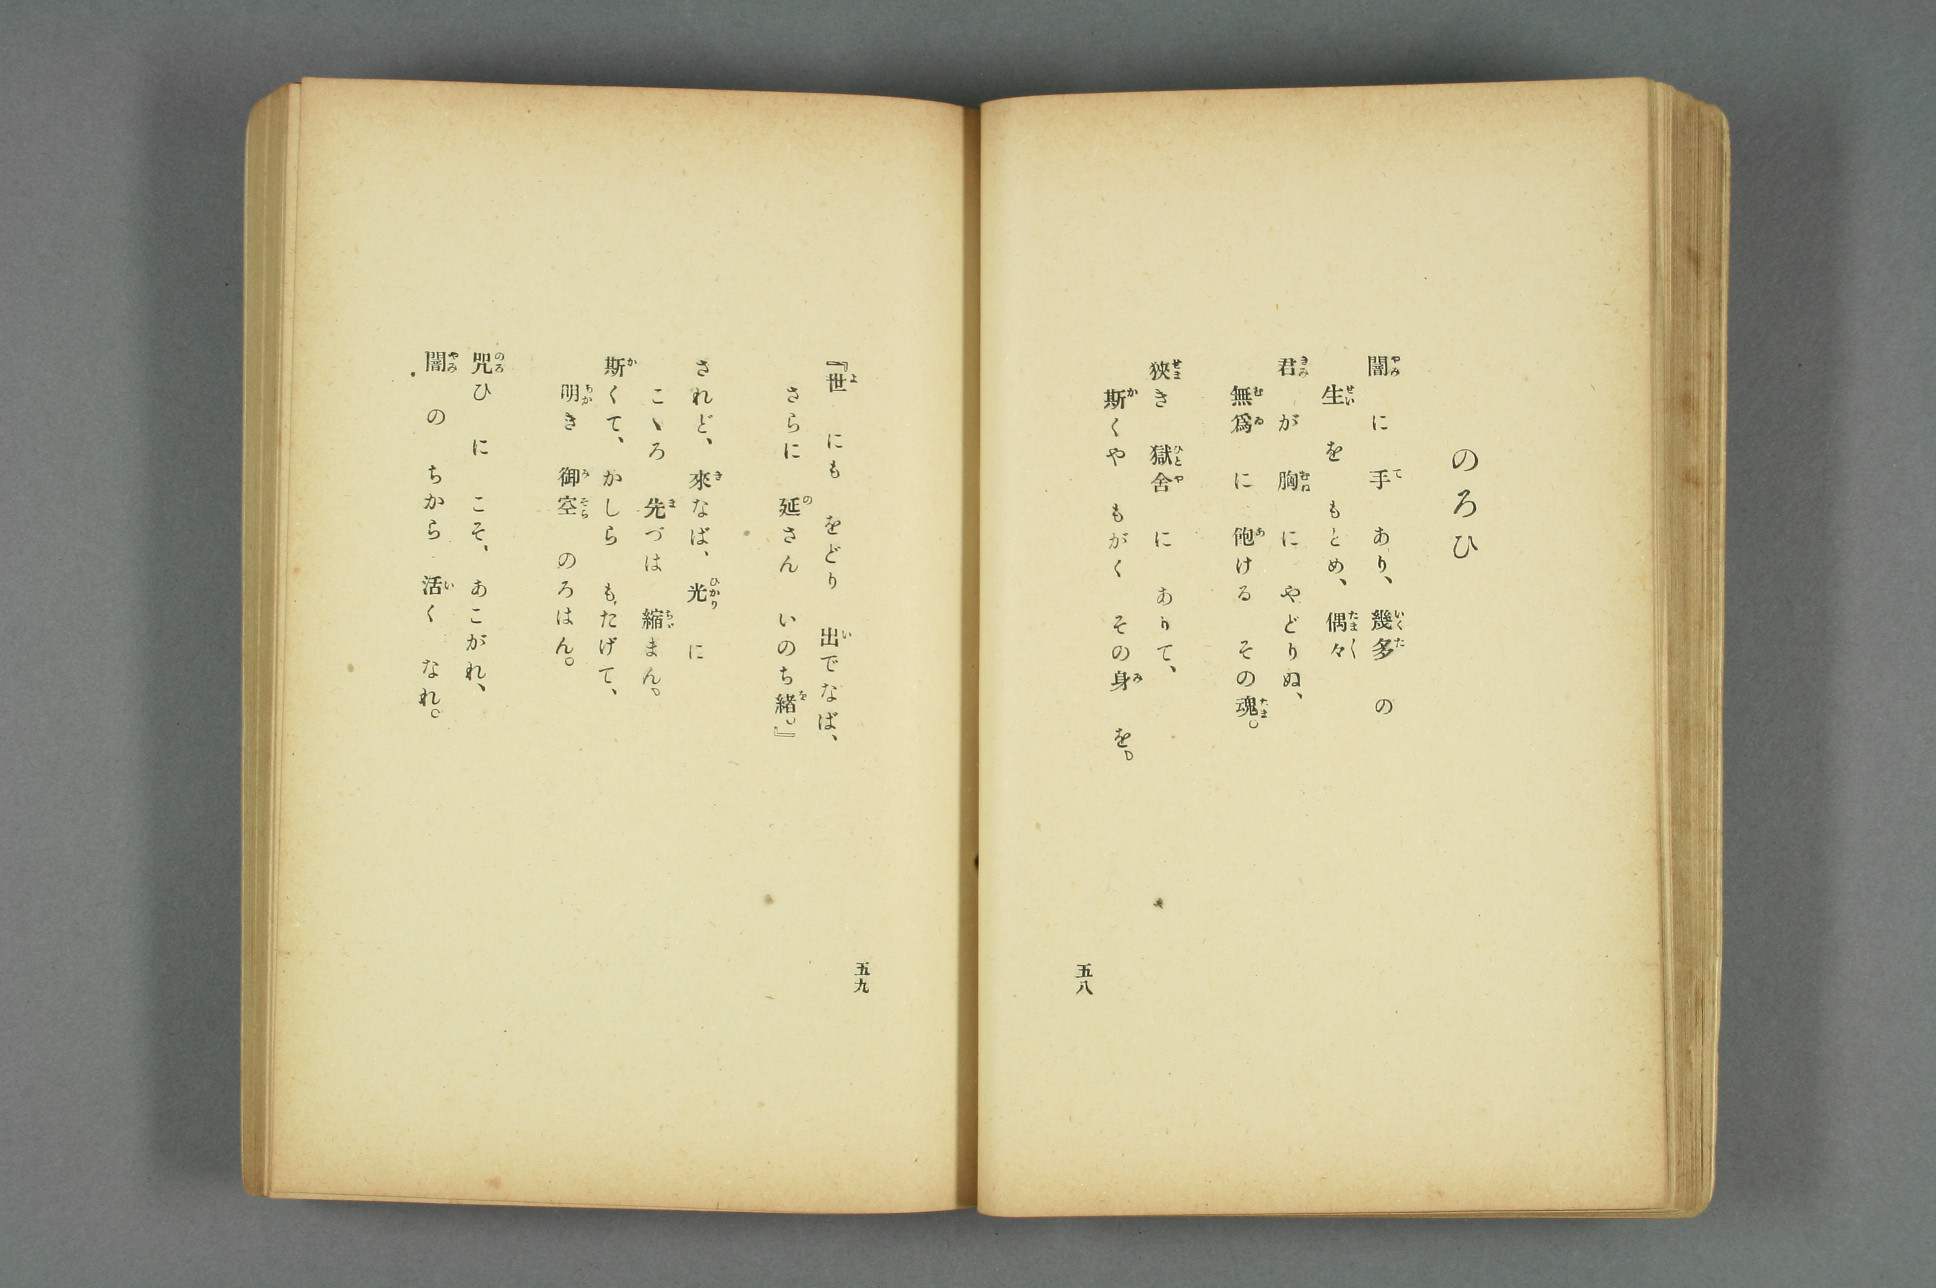 のろひ
闇に手あり、幾多の
生をもとめ、偶々
君が胸にやどりぬ、
無爲に飽ける その魂。
狹き 獄舍に ありて、
斯くや もがく その身を。
五八
『世にも をどり 出でなば、
さらに 延さん いのち緒。』
されど、來なば、光に
こゝろ 先づは 縮まん。
斯くて、かしら もたげて、
明き 御空 のろはん。
咒ひに こそ、あこがれ、
闇の ちから 活く なれ。
五九